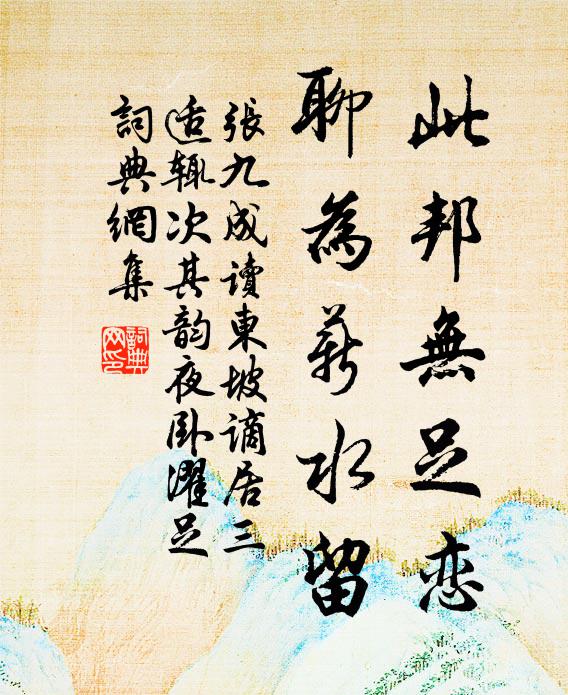 此邦無足恋
聊為薪水留
張九成讀東坡謫居三
适辄次其韵夜卧濯足
詞典網集
詞典
网印